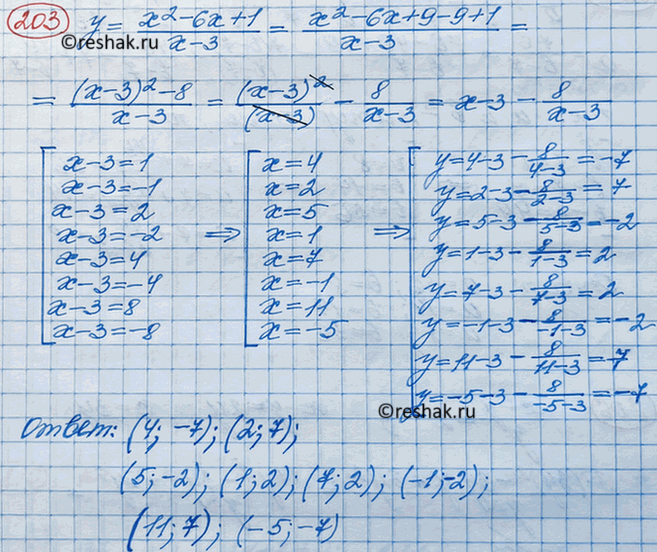 203 y = (x² - 6x + 1)/(x - 3) = (x² - 6x + 9 - 9 + 1)/(x - 3) =
©reshak.ru
= ((x-3)² - 8)/(x - 3) = (x-3)²/(x-3) - 8/(x-3) = x - 3 - 8/(x-3)
x-3=1
x-3=-1
x-3=2
x-3=-2
x-3=4
x-3=-4
x-3=8
x-3=-8
⇒
x=4
x=2
x=5
x=1
x=7
x=-1
x=11
x=-5
⇒
y=4-3 - 8/(4-3) = -7
y=2-3 - 8/(2-3) = 7
y=5-3 - 8/(5-3) = -2
y=1-3 - 8/(1-3) = 2
y=7-3 - 8/(7-3) = 2
y=-1-3 - 8/(-1-3) = -2
y=11-3 - 8/(11-3) = 7
y=-5-3 - 8/(-5-3) = -7
©reshak.ru
Ответ: (4; -7); (2; 7);
(5; -2); (1; 2); (7; 2); (-1; -2);
(11; 7); (-5; -7)